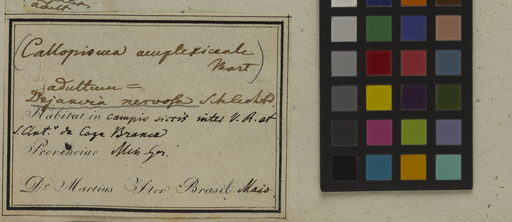 adult.
(Callopisma amplexicaule
Mart)
adultum =
Dejanira nervosa Schlecht
Habitat in campis siccis inter V. R. et
S. Ant.º da Caza Branca
Provinciae Min. Ger.
Dr Martius Iter Brasil. Maio.